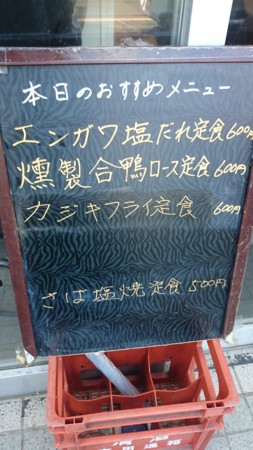 本日のおすすめメニュー
エンガワ塩だれ定食600円
燻製合鴨ロース定食600円
カジキフライ定食 600円
さば塩焼定食 500円